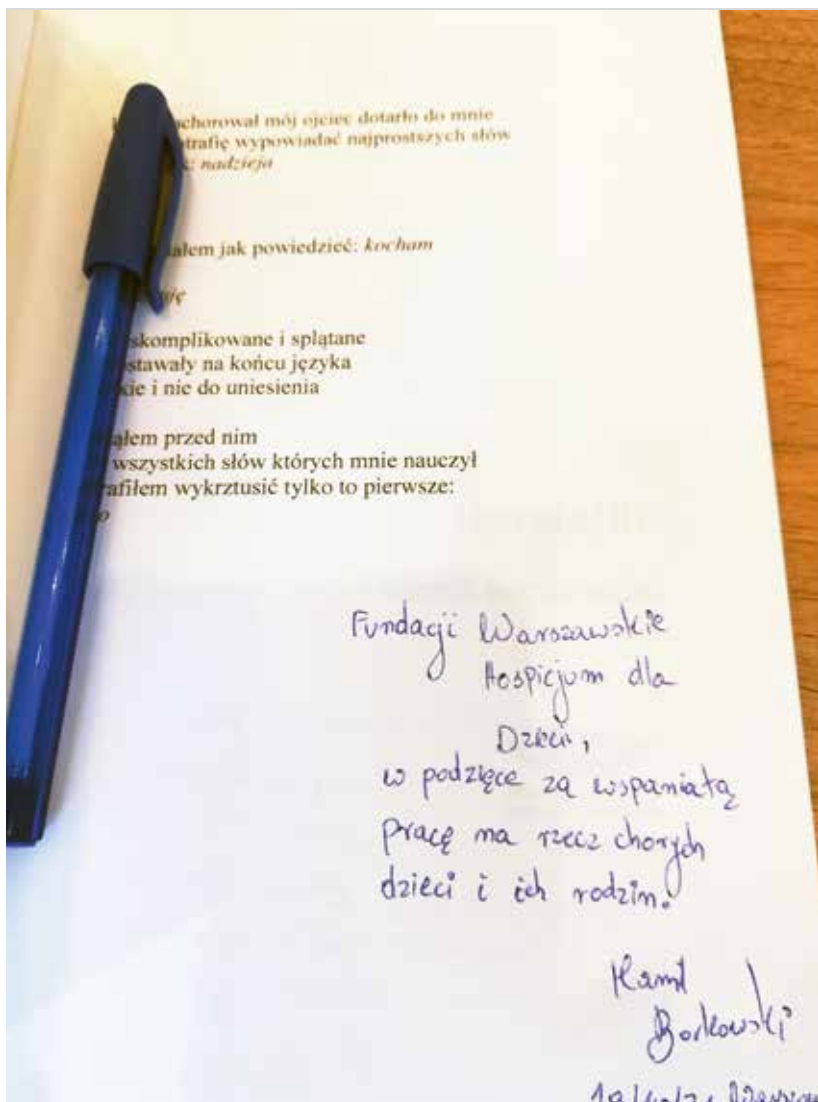 chorował mój ojciec dotarło do mnie
trafię wypowiadać najprostszych słów
nadzieja
ałem jak powiedzieć: kocham
skomplikowane i splątane
stawały na końcu języka
kie i nie do uniesienia
ąłem przed nim
wszystkich słów których mnie nauczył
afiłem wykrztusić tylko to pierwsze:
Fundacji Warszawskie
Hospicjum dla
Dzieci,
w podzięce za wspaniałą
pracę na rzecz chorych
dzieci i ich rodzin.
Kamil
Borkowski